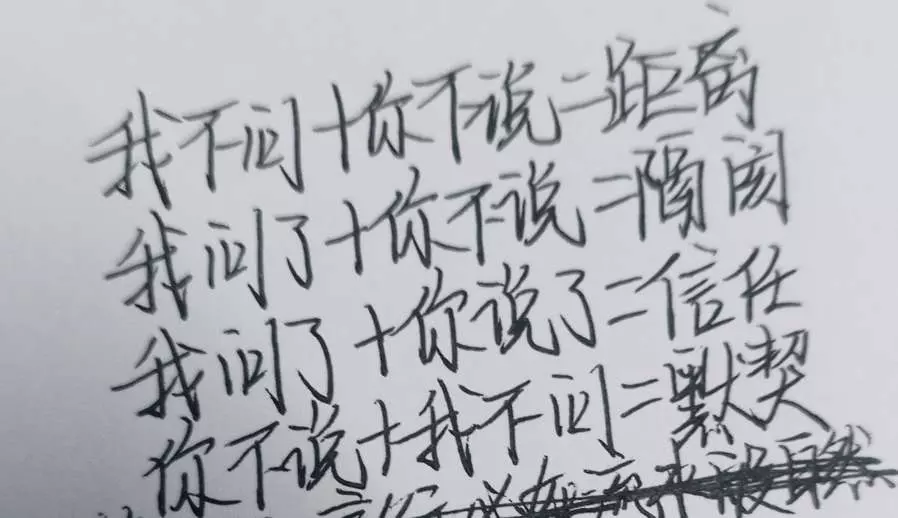 我不问+你不说=距离
我问了+你不说=隔阂
我问了+你说了=信任
你不说+我不问=默契